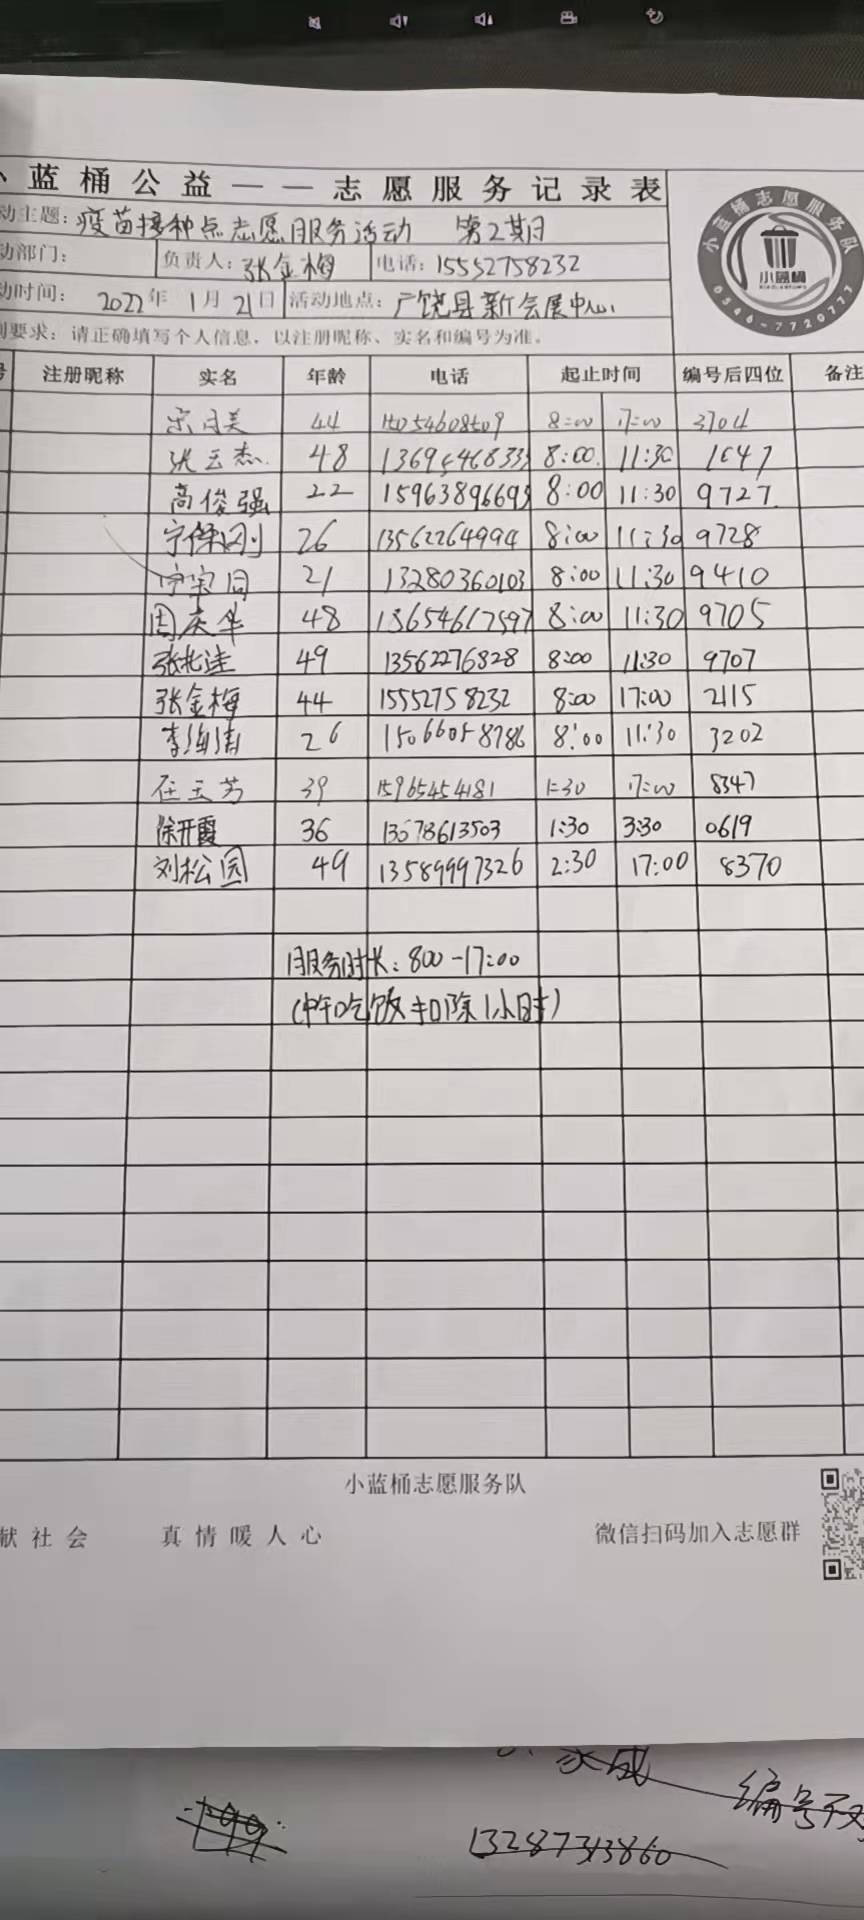 蓝桶公益——志愿服务记录表
动主题: 疫苗接种点志愿服务活动 第2期
动部门: 负责人: 张金梅 电话: 15552758232
动时间: 2022年1月21日 活动地点: 广饶县新会展中心
要求: 请正确填写个人信息, 以注册昵称、实名和编号为准。
号 注册昵称 实名 年龄 电话 起止时间 编号后四位 备注
宋月美 44 15054608509 8:00 17:00 3704
张云杰 48 8:00 11:30 1047
高俊强 22 15963896693 8:00 11:30 9727
26 13562264994 8:00 11:30 9728
21 13280360103 8:00 11:30 9410
周庆华 48 13654617597 8:00 11:30 9705
49 13562276828 8:00 11:30 9707
张金梅 44 15552758232 8:00 17:00 2115
李海涛 26 15066058786 8:00 11:30 3202
任玉芳 39 15965454181 1:30 17:00 8347
徐开霞 36 1:30 3:30 0619
刘松园 49 13589997326 2:30 17:00 8370
服务时长: 800-17:00
(中午吃饭扣除1小时)
小蓝桶志愿服务队
献社会 真情暖人心 微信扫码加入志愿群
小蓝桶志愿服务队
小蓝桶
0546-7720777
编号不对
13287313860